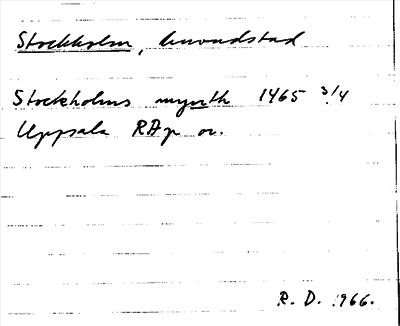 Stockholm, huvudstad
Stockholms mynth 1465 3/4
Uppsala RAp or.
R. D. 1966.